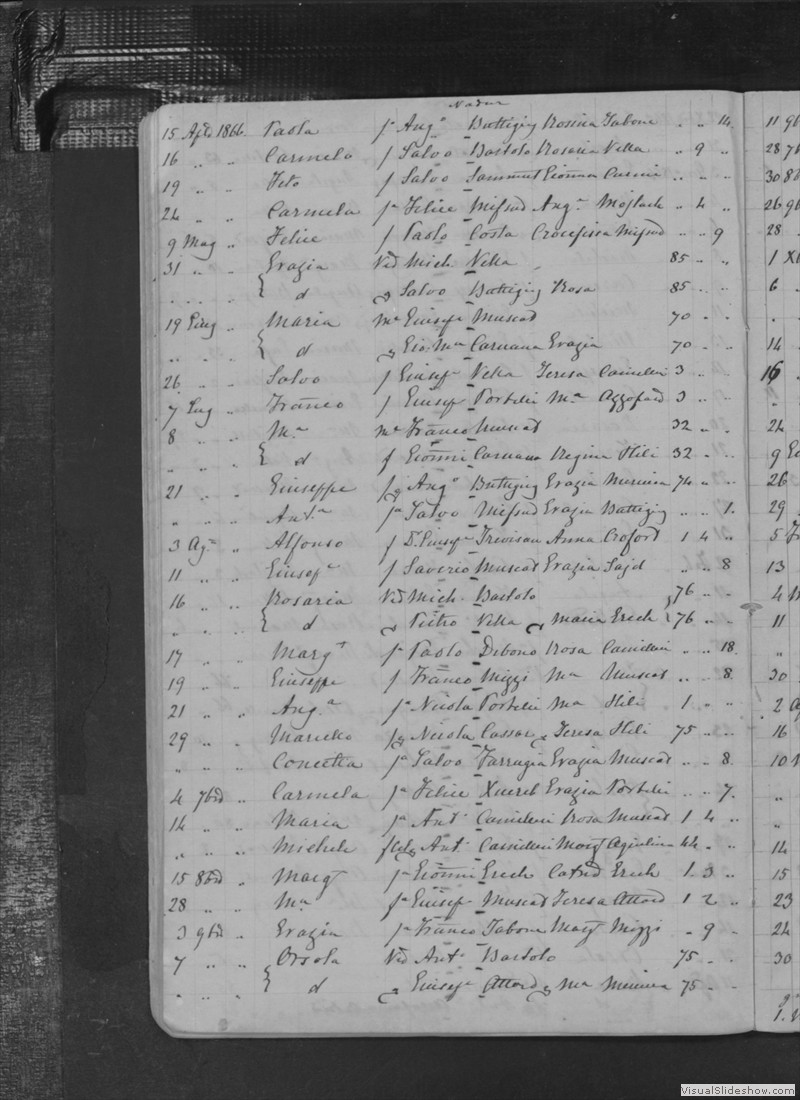 Nadur
15 Aple 1866 Paola fa Ango Buttigieg Rosina Tabone .. .. 14 11 9b
16 .. .. Carmelo f Salvo Bartolo Rosaria Vella .. 9 .. 28 7b
19 .. .. Teto f Salvo Sammut Giovna .. .. .. 30 8b
24 .. .. Carmela fa Felice Mifsud Anga Mejlach .. 4 .. 26 9b
9 Mag .. Felice f Paolo Costa Crocefissa Mifsud .. .. 9 28
31 .. .. Grazia Vid Mich. Vella 85 .. .. 1 X
.. .. .. d Salvo Buttigieg Rosa 85 .. .. 6
19 Giug .. Maria me Giusepe Muscat 70 .. ..
.. .. .. d Gio. Ma Caruana Grazia 70 .. .. 14
26 .. .. Salvo f Giuse Vella Teresa Camilleri 3 .. .. 16
7 Lug .. Franco f Giusepe Portelli Ma Azzopard 3 .. ..
8 .. .. Ma me Franco Muscat 32 .. .. 24
.. .. .. d f Giovni Caruana Regina Hili 32 .. .. 9
21 .. .. Giuseppe Ango Buttigieg Grazia 74 .. .. 26
.. .. .. Anta fa Salvo Mifsud Grazia Buttigieg .. .. 1. 29
3 Ago .. Alfonso f Dr. Giusepe Trevisan Anna Croford 1 4 .. 5
11 .. .. Giusepe f Saverio Muscat Grazia Sajd .. .. 8 13
16 .. .. Rosaria Vid Mich. Bartolo 76 .. .. 4
.. .. .. d Pietro Vella Maria Grech 76 .. .. 11
17 .. .. Marga fa Paolo Debono Rosa Camilleri .. .. 18 ..
19 .. .. Giuseppe f Franco Mizzi Ma Muscat .. .. 8. 30
21 .. .. Anga fa Nicola Portelli Ma Hili 1 .. .. 2
29 .. .. Nicola Cassar Teresa Hili 75 .. .. 16
.. .. .. Concetta fa Salvo Farrugia Grazia Muscat .. .. 8. 10
4 7bre .. Carmela fa Felice Xuereb Grazia Portelli .. .. 7. ..
14 .. .. Maria fa Anto Camilleri Rosa Muscat 1 4 .. ..
.. .. .. Michele Anto Camilleri Marga Agiulina 44 .. .. 14
15 8bre .. Marga fa Giovni Grech Catnd Grech 1 3 .. 15
28 .. .. Ma fa Giusepe Muscat Teresa Attard 1 2 .. 23
3 9bre .. Grazia fa Franco Tabone Marga Mizzi .. 9 .. 24
7 .. .. Orsola Vid Anto Bartolo 75 .. .. 30
.. .. .. d Giusepe Attard Ma 75 .. ..
1.
VisualSlideshow.com